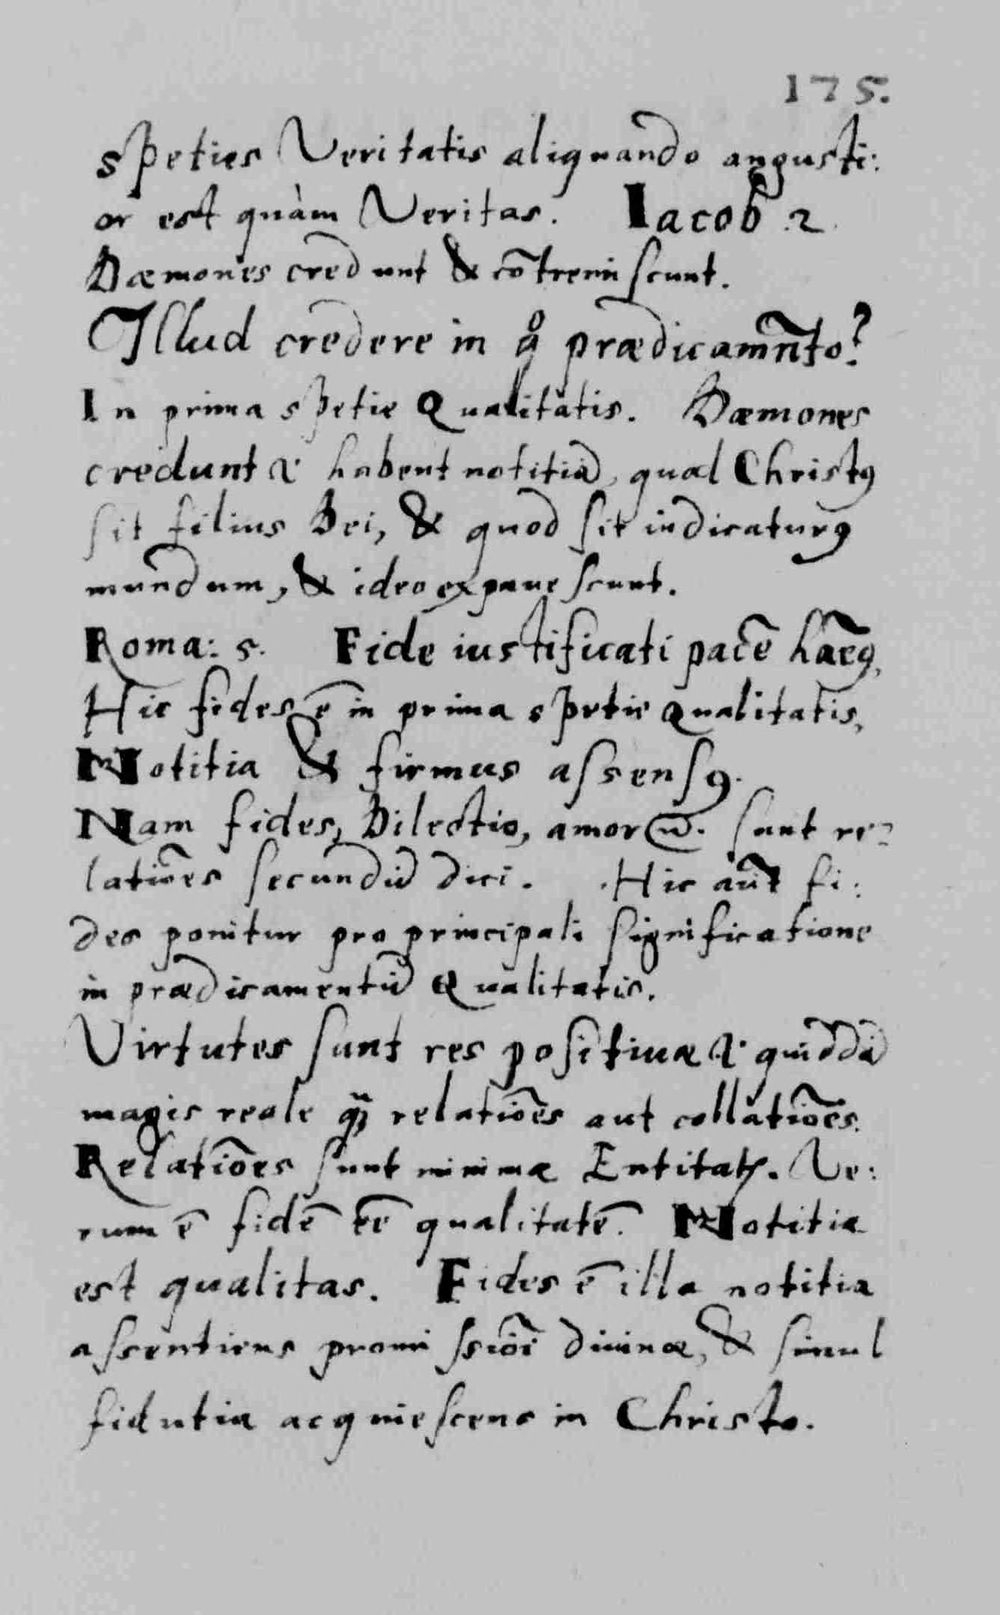 175.
speties Veritatis aliquando angusti:
or est quàm Veritas. Iacob .2.
Dæmones credunt & cõtremiscunt.
Illud credere in qͦ prædicamñto?
In prima spetie Qualitatis. Dæmones
credunt & habent notitiã, quod Christꝯ
sit filius Dei, & quod sit iudicaturꝯ
mundum, & ideo expauescunt.
Roma: 5. Fide iustificati pacẽ habẽꝯ,
Hic fides ẽ in prima spetie qualitatis,
Notitia & firmus assensꝯ.
Nam fides, Dilectio, amor sunt re-
latiões secundũ dici. Hic aũt fi:
des ponitur pro principali significatione
in prædicamentũ Qualitatis.
Virtutes sunt res positiuæ & quiddã
magis reale ꝗ̃ relatiões aut collatiões.
Relatiões sunt minimæ Entitatꝭ. Ve:
rum ẽ fidẽ eẽ qualitatẽ. Notitia
est qualitas. Fides ẽ illa notitia
assentiens promissiõi diuinæ, & simul
fidutia acquiescens in Christo.